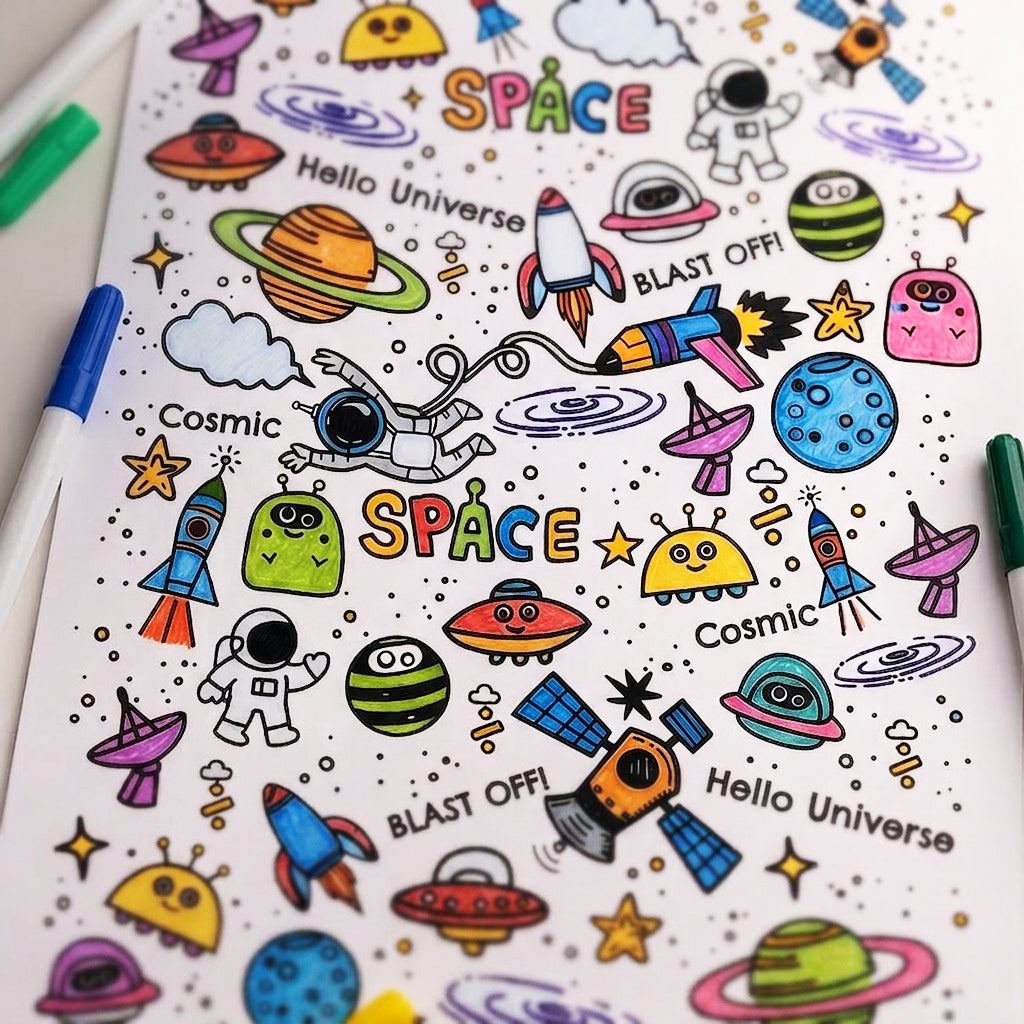 SPACE
Hello Universe
BLAST OFF!
Cosmic
SPACE
Cosmic
BLAST OFF!
Hello Universe